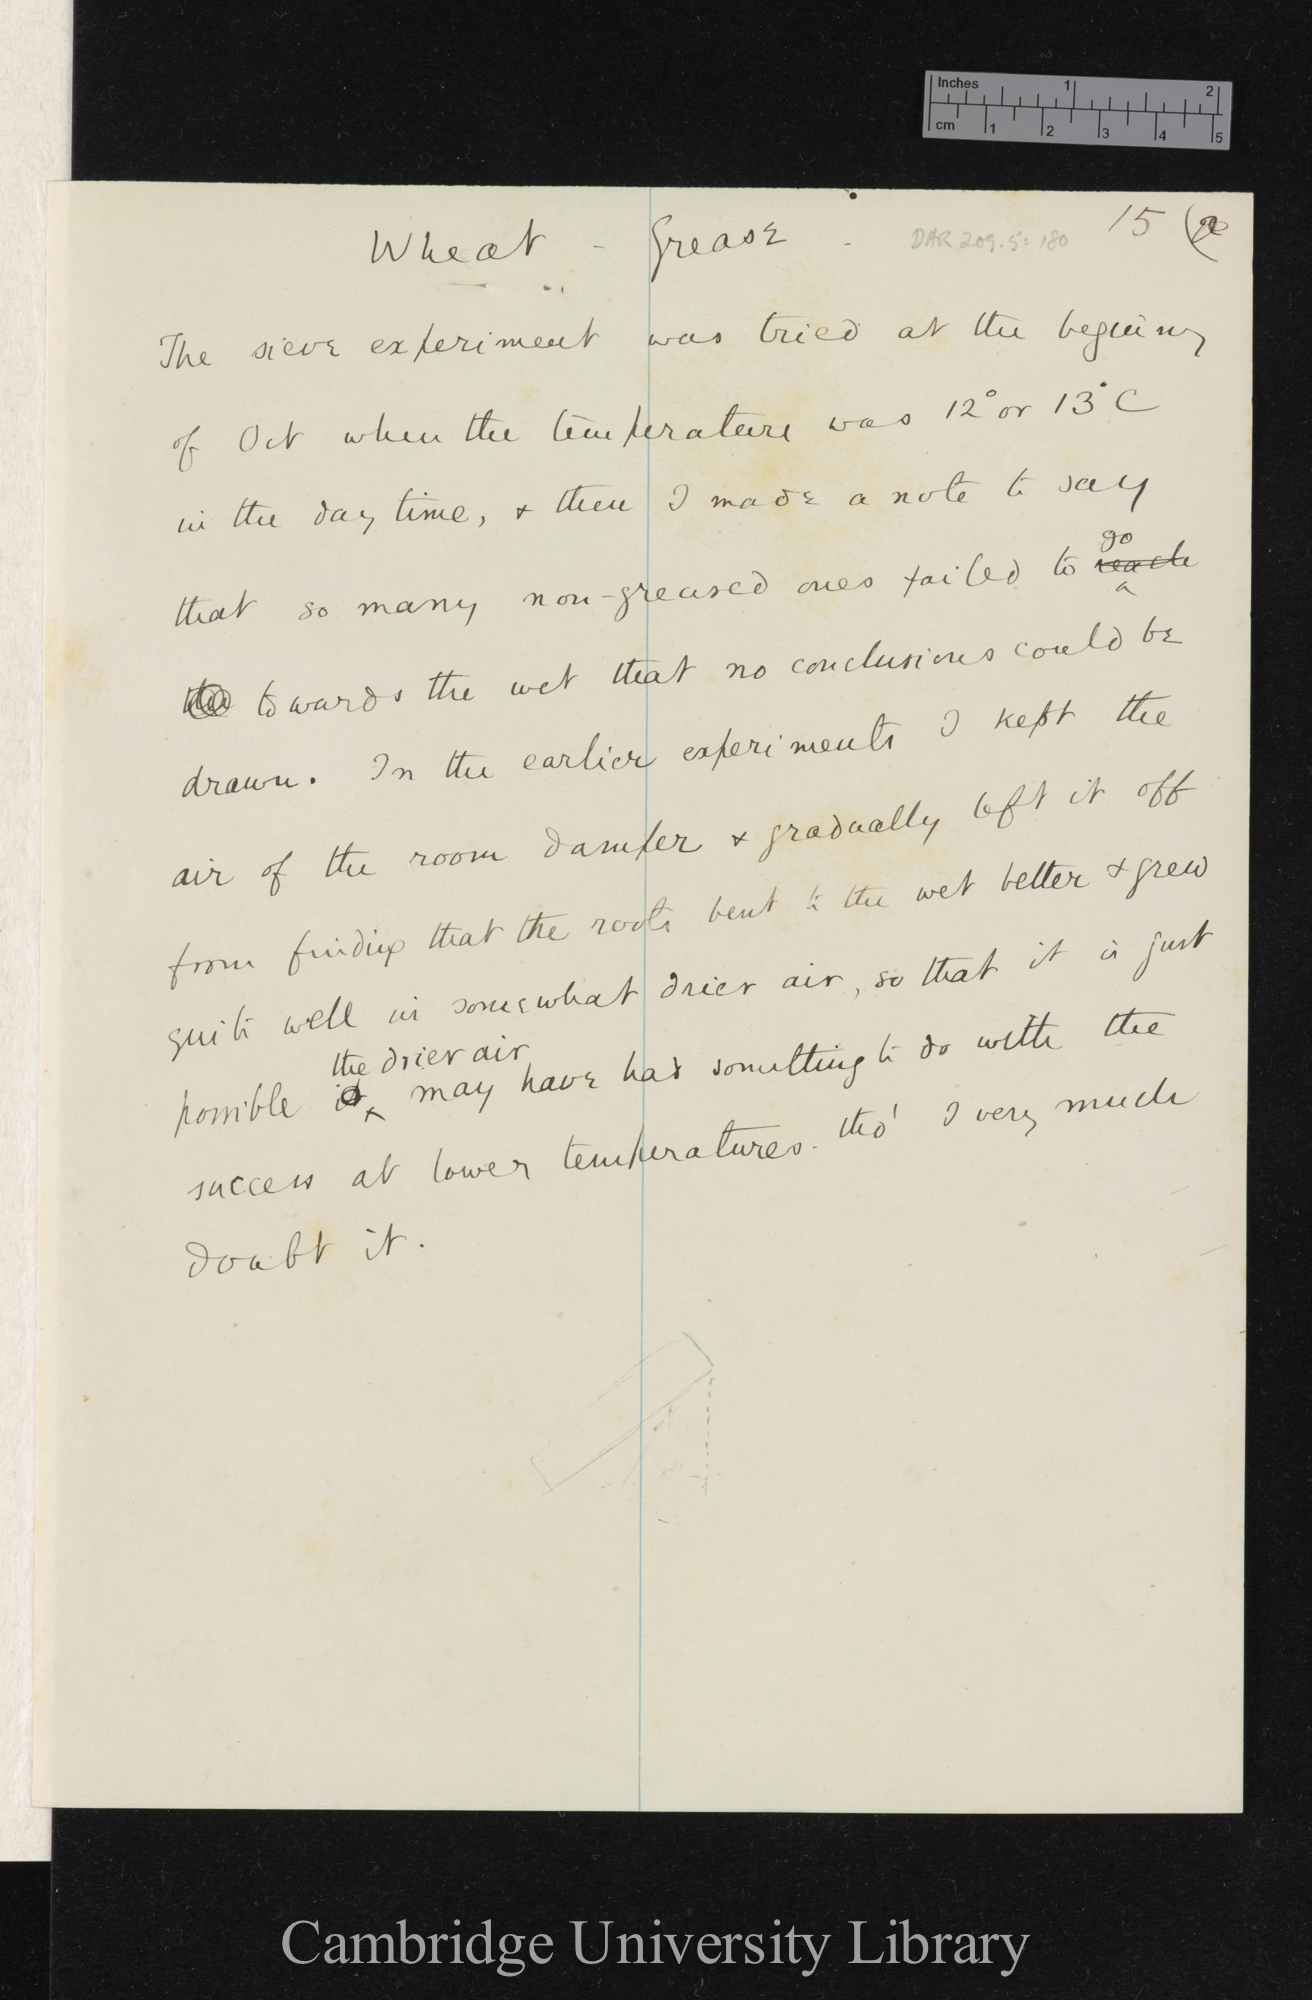 Inches 1 2
cm 1 2 3 4 5
Wheat - Grease. DAR 209.5:180 15
The sieve experiment was tried at the beginning
of Oct when the temperature was 12° or 13°C
in the day time, & then I made a note to say
go
that so many non-greased ones failed to reach
towards the wet that no conclusions could be
drawn. In the earlier experiments I kept the
air of the room damper & gradually left it off
from finding that the roots bent to the wet better & grew
quite well in somewhat drier air, so that it is just
the drier air
possible it may have had something to do with the
success at lower temperatures. tho' I very much
doubt it.
Cambridge University Library